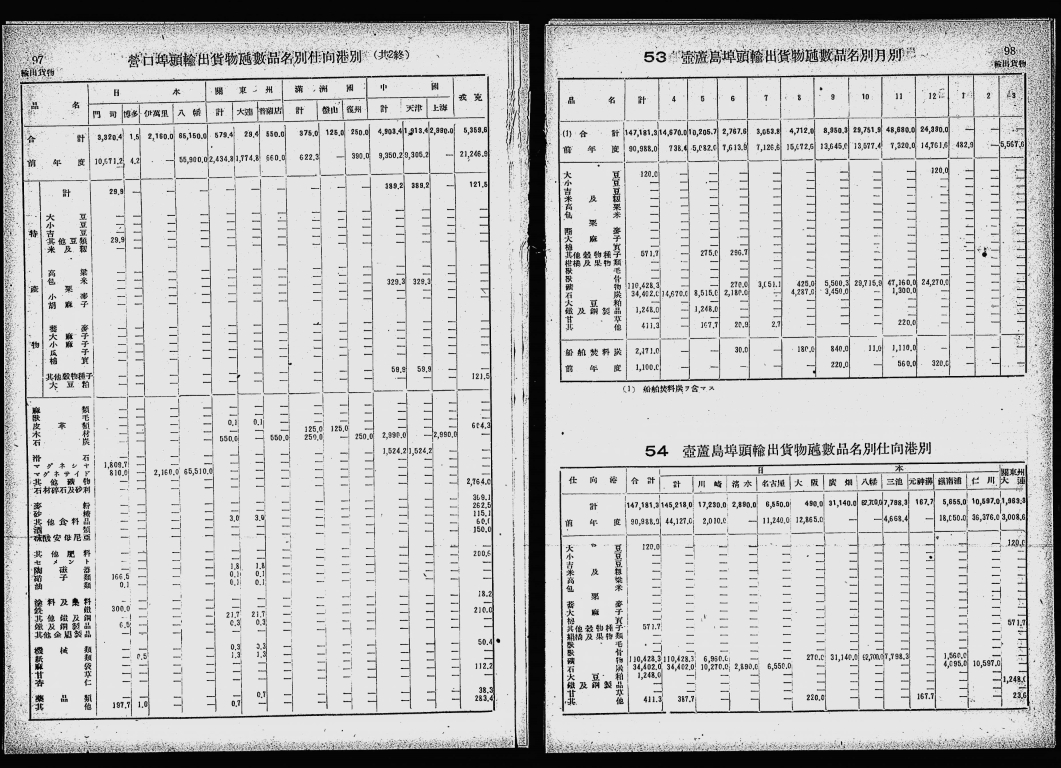 97
輸出貨物
營口埠頭輸出貨物噸數品名別仕向港別 (共2終)
品 名 日 本 關 東 州 滿 洲 國 中 國 戎克
門司 博多 伊萬里 八幡 計 大連 普蘭店 計 盤山 復州 計 天津 上海
合 計 3,320.4 1.5 2,160.0 65,150.0 579.4 29.4 550.0 375.0 125.0 250.0 4,903.4 1,913.4 2,990.0 5,359.6
前 年 度 10,671.2 4.2 — 55,900.0 2,434.8 1,774.8 660.0 622.3 — 390.0 9,350.2 9,305.2 — 21,246.9
特 產 物
計 29.9 389.2 389.2 121.5
大 豆
小 豆
吉 豆
其他豆類 29.9
米及籾
高 粱
包 米 329.3 329.3
粟
小 麥
胡麻子
蕎 麥
大麻子
小麻子
瓜 子
楠 實
其他穀物種子 59.9 59.9
大豆粕 121.5
麻 類
獸 毛
皮革類 0.1 0.1 604.3
木 材 125.0 125.0
石 炭 550.0 550.0 250.0 250.0 2,990.0 2,990.0
滑 石 1,524.2 1,524.2
マグネシヤ 1,809.7
マグネサイド 810.0 2,160.0 65,510.0
其他鑛物 2,764.0
石材碎石及砂利
麥 粉 309.1
砂 糖 262.5
其他食料品 3.0 3.9 115.1
酒 類 60.0
硫酸安母尼亞 150.0
其他肥料 200.6
セメント
陶磁器 1.8 1.8
硝子類 166.5 0.1 0.1
油 類 0.1 0.1 0.1
塗料及藥料 18.2
銑鐵 300.0
其他鐵及鋼 21.7 21.7 210.0
鐵及鋼製品 6.5 0.3 0.3
其他金屬製品
機械類 0.3 0.3 50.4
紙 類 0.5 1.3 1.3
麻 袋
甘 草 112.2
杏 仁
藥品類 0.7 38.3
其 他 197.7 1.0 0.7 283.4
98
輸出貨物
53 壺蘆島埠頭輸出貨物噸數品名別月別
品 名 計 4 5 6 7 8 9 10 11 12 1 2 3
(1) 合 計 147,181.3 14,670.0 10,205.7 2,767.6 3,053.8 4,712.0 8,950.3 29,751.9 48,680.0 24,390.0
前 年 度 90,988.0 738.4 5,082.0 7,613.9 7,126.6 15,072.6 13,645.0 13,577.4 7,320.0 14,761.6 482.9 — 5,567.6
大 豆 120.0 120.0
小 豆
吉 豆
米及籾
高 粱
包 米
粟
蕎 麥
大麻子
楠 實
其他穀物種子 571.7 275.0 296.7
柑橘及果物類
獸 毛
獸 骨
鑛 物 110,428.3 270.0 3,051.1 425.0 5,500.3 29,715.9 47,160.0 24,270.0
石 炭 34,402.0 14,670.0 8,515.0 2,180.0 4,287.0 3,450.0 1,300.0
大豆粕
鐵及鋼製品 1,248.0 1,248.0
甘 草
其 他 411.3 167.7 20.9 2.7 220.0
船舶焚料炭 2,171.0 30.0 180.0 840.0 11.0 1,110.0
前 年 度 1,100.0 220.0 560.0 320.0
(1) 船舶焚料炭ヲ含マス
54 壺蘆島埠頭輸出貨物噸數品名別仕向港別
仕 向 港 合計 日 本 關東州
計 川崎 清水 名古屋 大阪 廣畑 八幡 三池 元神溝 鎭南浦 仁川 大連
計 147,181.3 145,218.0 17,230.0 2,890.0 6,550.0 490.0 31,140.0 62,700.0 7,798.3 167.7 5,655.0 10,597.0 1,963.3
前 年 度 90,988.9 44,127.0 2,010.0 11,240.0 12,865.0 4,668.4 18,050.0 36,376.0 3,008.6
大 豆 120.0 120.0
小 豆
吉 豆
米及籾
高 粱
包 米
粟
蕎 麥
大麻子
楠 實
其他穀物種子 571.7 571.7
柑橘及果物類
獸 毛
獸 骨
鑛 物 110,428.3 110,428.3 6,960.0 270.0 31,140.0 62,700.0 7,798.3 1,560.0
石 炭 34,402.0 34,402.0 10,270.0 2,890.0 6,550.0 4,095.0 10,597.0
大豆粕 1,248.0
鐵及鋼製品 1,248.0
甘 草
其 他 411.3 387.7 220.0 167.7 23.6